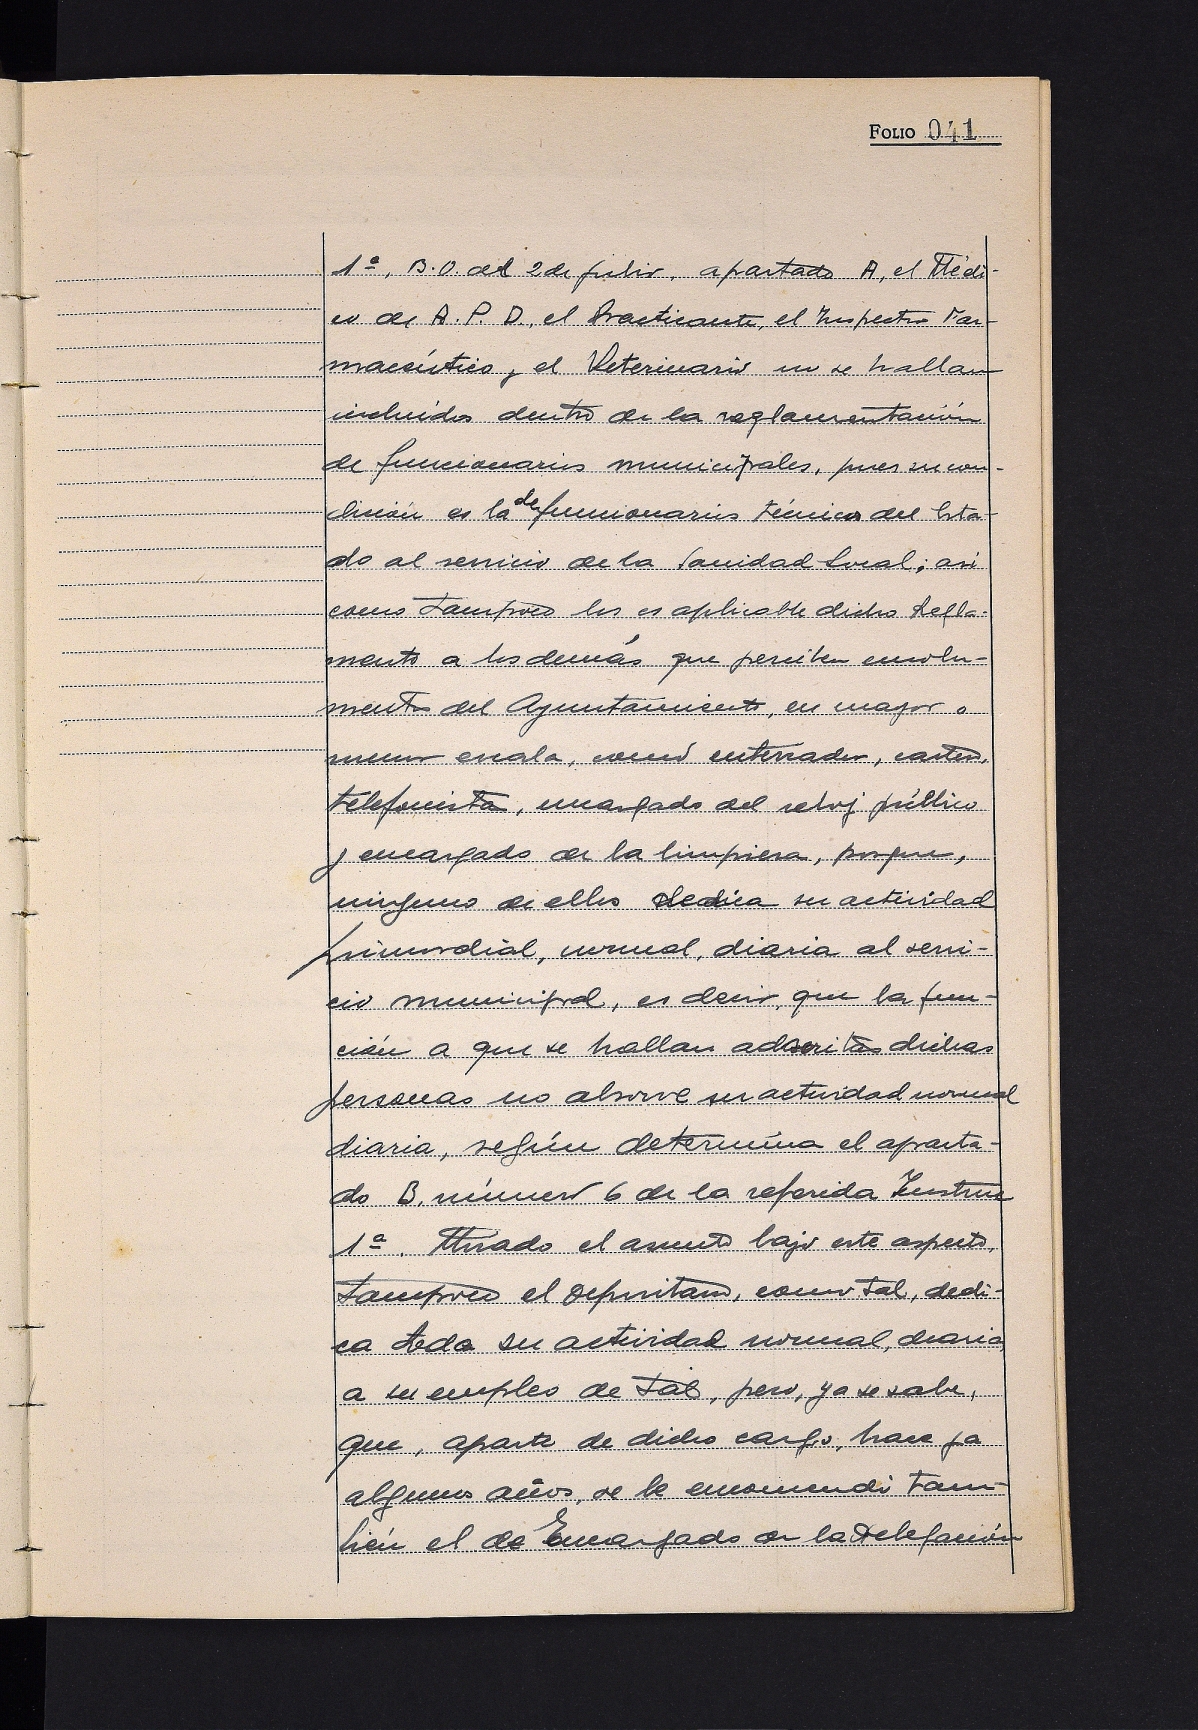 FOLIO 041
1ª, B.O. del 2 de julio, apartado A, el Médi-
co de A.P.D., el Practicante, el Inspector Far-
macéutico y el Veterinario no se hallan
incluidos dentro de la reglamentación
de funcionarios municipales, pues su con-
dición es la de funcionarios técnicos del Esta-
do al servicio de la Sanidad Local; así
como tampoco les es aplicable dicho Regla-
mento a los demás que perciben emolu-
mentos del Ayuntamiento, en mayor o
menor escala, como enterrador, cartero,
telefonista, encargado del reloj público
y encargado de la limpieza, porque,
ninguno de ellos dedica su actividad
primordial, normal, diaria al servi-
cio municipal, es decir, que la fun-
ción a que se hallan adscritas dichas
personas no absorve su actividad normal
diaria, según determina el aparta-
do B, número 6 de la referida Instruc
1ª. Mirado el asunto bajo este aspecto,
tampoco el Depositario, como tal, dedi-
ca toda su actividad normal, diaria,
a su empleo de tal, pero, ya se sabe,
que, aparte de dicho cargo, hace ya
algunos años, se le encomendó tam-
bién el de Encargado de la Delegación